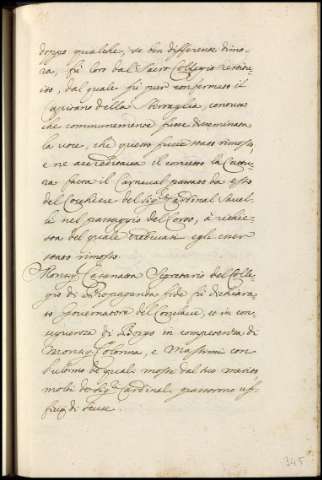 doppo qualche, se ben differente dimo-
ra, fù loro dal Sacro Collegio restitu-
ito, dal quale fù pur confermato il
Capitano della Sbirraglia, conosciu
che communemente fusse disseminata
la voce, che questo fusse stato rimosso,
e ne accreditava il concetto la
fatta il Carneval passato da esso
del Cocchiere del Sig.r Cardinal
nel passaggio del Corso, à richie-
sta del quale credevasi egli esser
stato rimosso.
Monsig.r Casanata Segretario del Colle-
gio di Propaganda fide fù dichiara-
to Governatore del Conclave, et in con-
sequenza di Borgo in competenza di
Mons.r Colonna, e Massimi con
de quali mossi dal suo merito
molti de Sig.ri Cardinali passorono uf-
ficij di scuse.
345